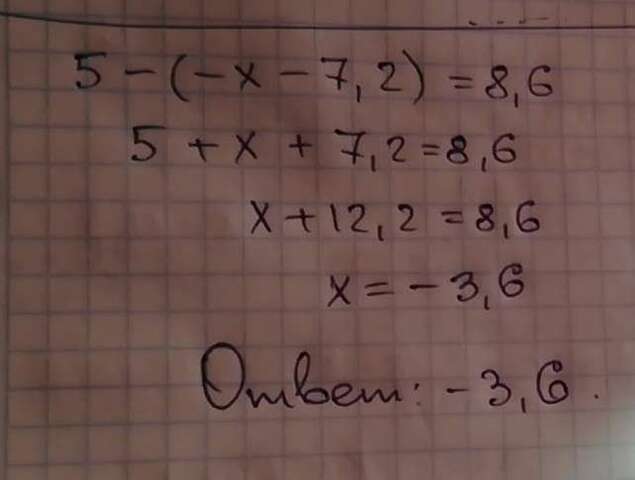 5 - (-x - 7,2) = 8,6
5 + x + 7,2 = 8,6
x + 12,2 = 8,6
x = - 3,6
Ответ: - 3,6.